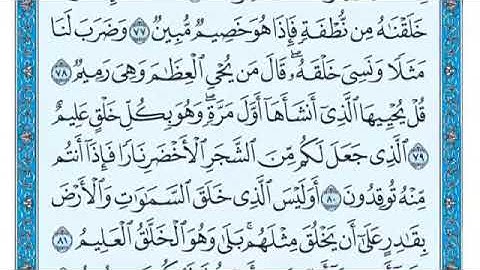 خَلَقْنَاهُ مِن نُّطْفَةٍ فَإِذَا هُوَ خَصِيمٌ مُّبِينٌ ٧٧ وَضَرَبَ لَنَا
مَثَلًا وَنَسِىَ خَلْقَهُۥۖ قَالَ مَن يُحْىِ ٱلْعِظَامَ وَهِىَ رَمِيمٌ ٧٨
قُلْ يُحْيِيهَا ٱلَّذِىٓ أَنشَأَهَآ أَوَّلَ مَرَّةٍۖ وَهُوَ بِكُلِّ خَلْقٍ عَلِيمٌ
٧٩ ٱلَّذِى جَعَلَ لَكُم مِّنَ ٱلشَّجَرِ ٱلْأَخْضَرِ نَارًا فَإِذَآ أَنتُم
مِّنْهُ تُوقِدُونَ ٨٠ أَوَلَيْسَ ٱلَّذِى خَلَقَ ٱلسَّمَٰوَٰتِ وَٱلْأَرْضَ
بِقَٰدِرٍ عَلَىٰٓ أَن يَخْلُقَ مِثْلَهُمۚ بَلَىٰ وَهُوَ ٱلْخَلَّٰقُ ٱلْعَلِيمُ ٨١